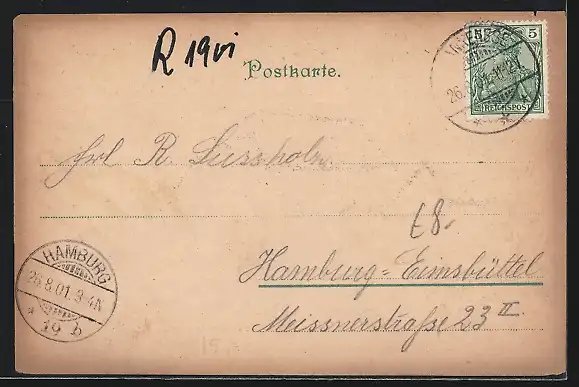 R 19vi
Postkarte.
5
REICHSPOST
26.8.01
Frl R.
£8.-
HAMBURG
26.8.01.3-4N
* 19 b
Hamburg=Eimsbüttel
Meissnerstraße 23 II